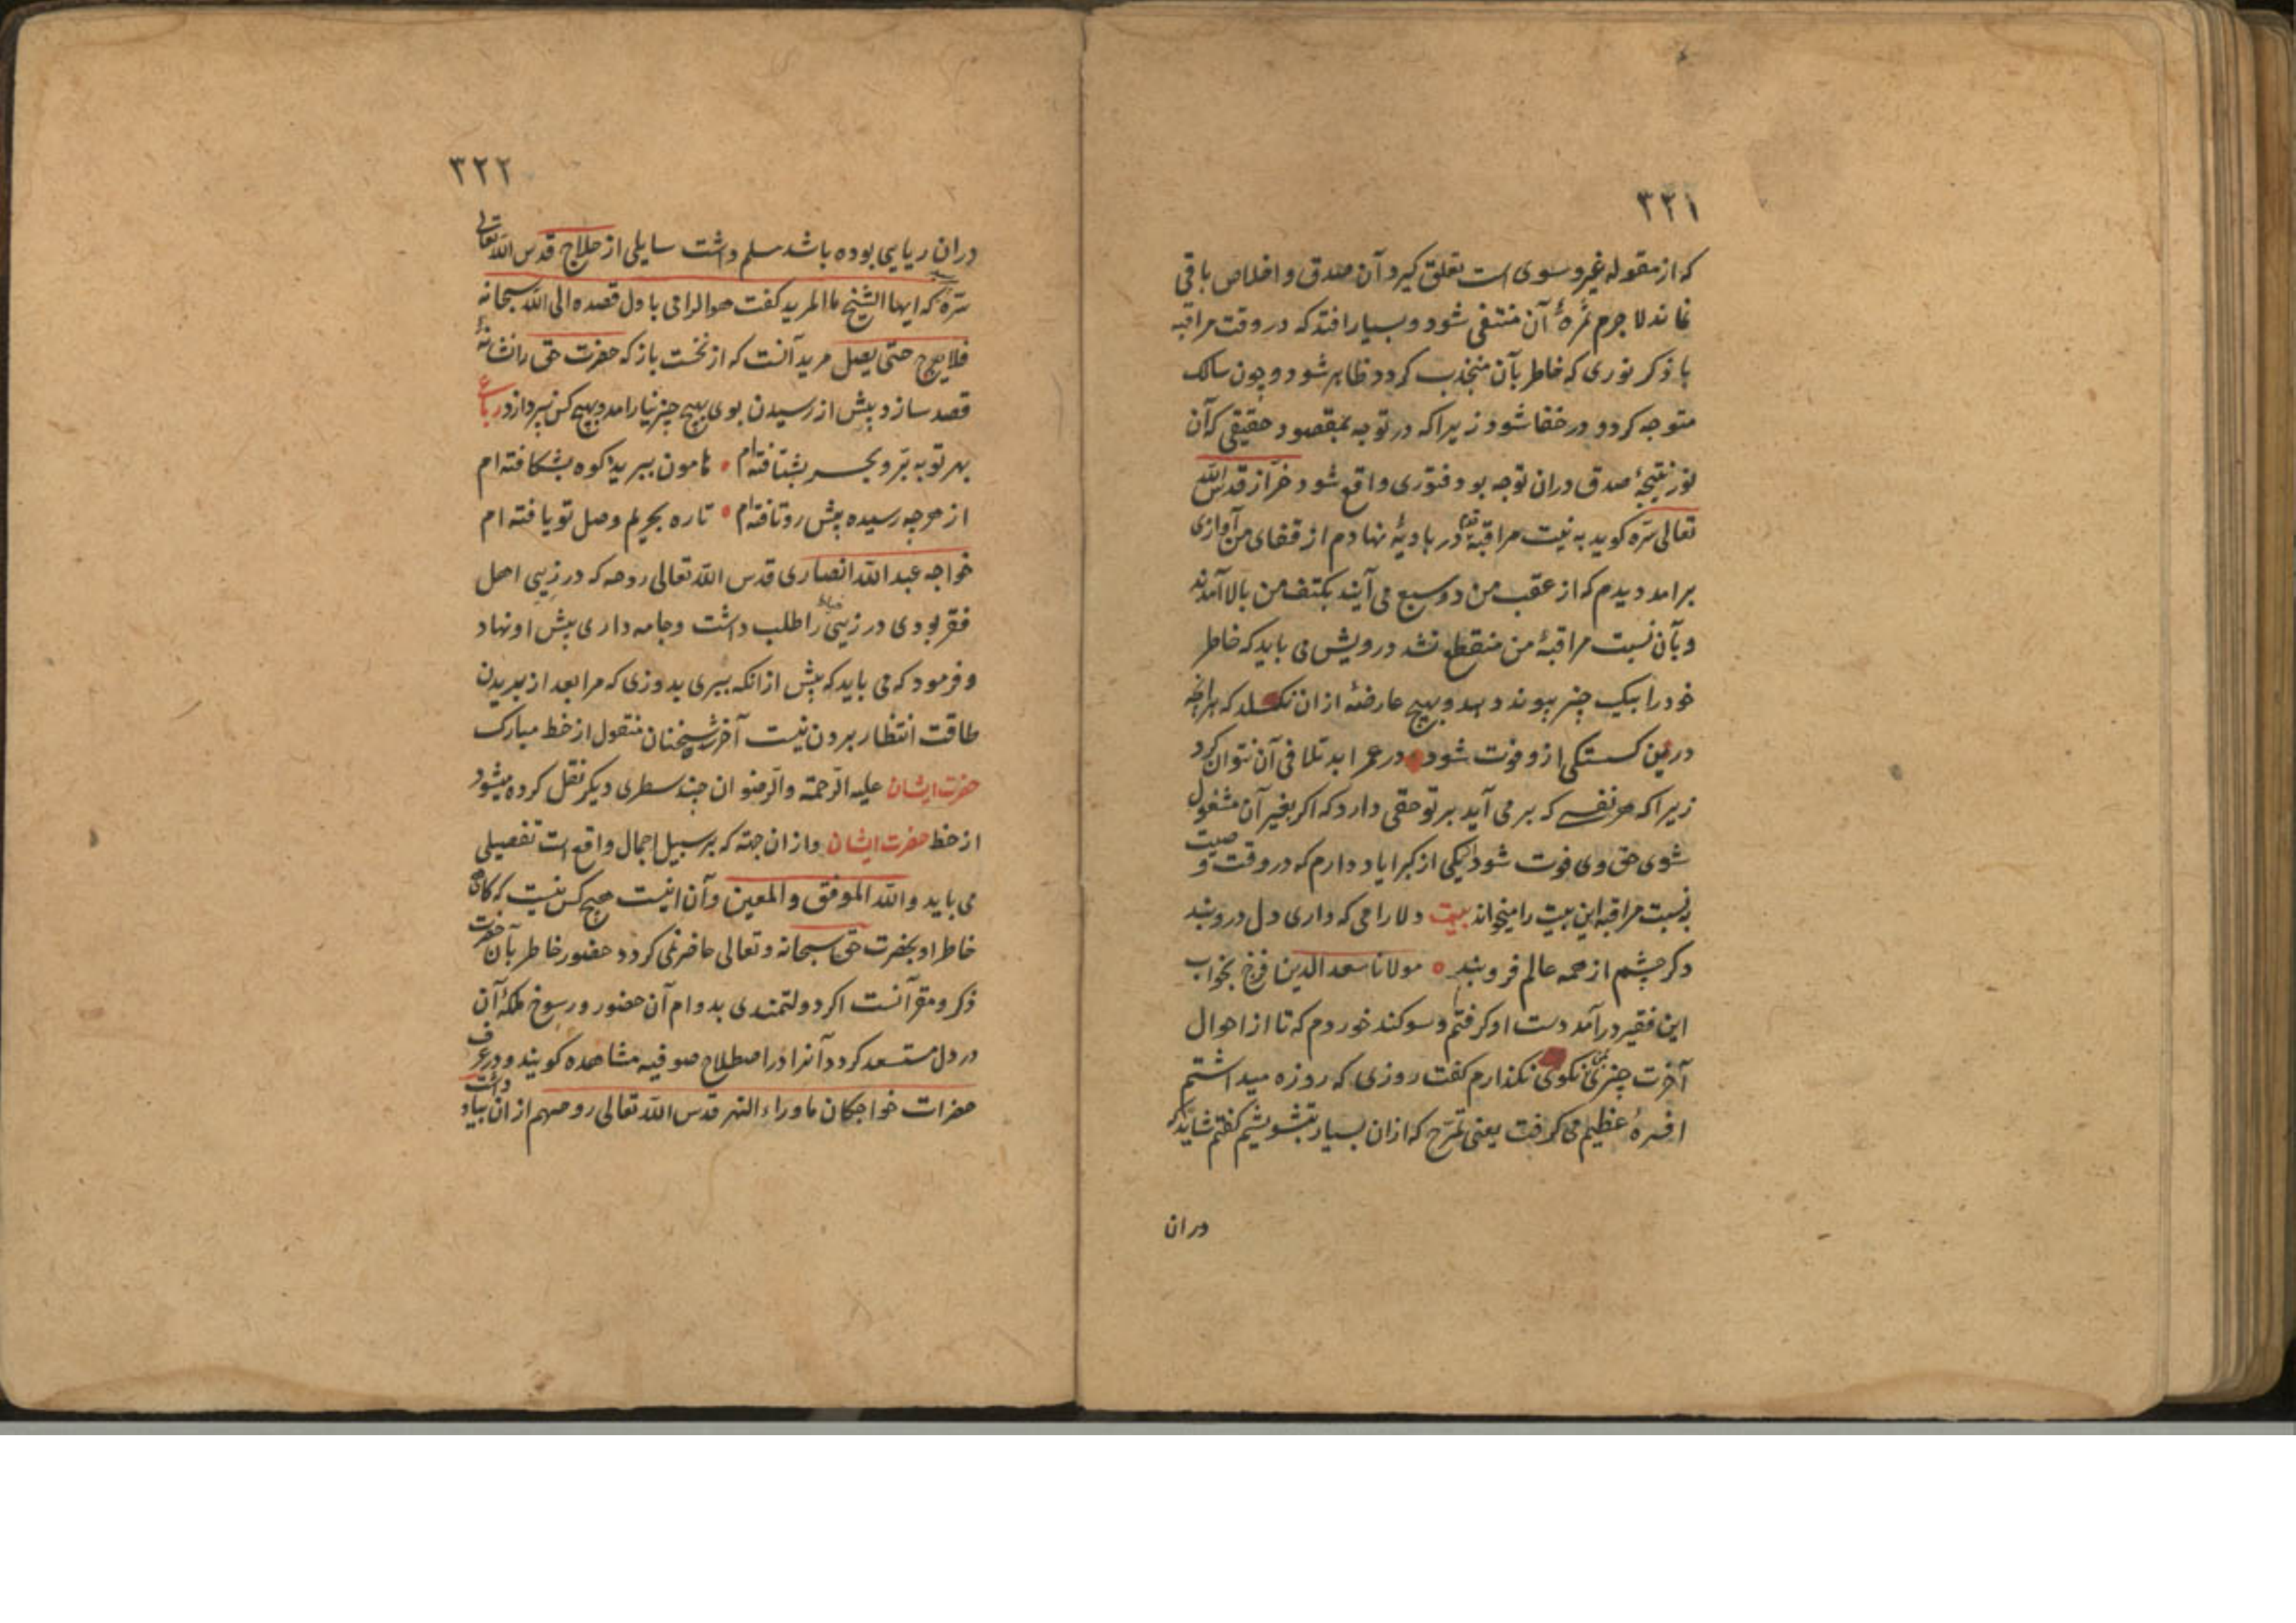 ۳۲۱
که از مقوله غیر و سوی است تعلق کیرد آن صدق و اخلاص باقی
نماند لا جرم ثمرهٔ آن منتفی شود و بسیار افتد که در وقت مراقبه
یا ذکر نوری که خاطر بآن منجذب کردد ظاهر شود و چون سالک
متوجه کردد در خفا شود زیرا که در توجه بمقصود حقیقی که آن
نور نتیجهٔ صدق دران توجه بود فتوری واقع شود خرّاز قدس الله
تعالی سرّه کوید به نیت مراقبه قدم در بادیهٔ نهادم از قفای من آوازی
برامد دیدم که از عقب من دو سبع می آیند بکتف من بالا آمدند
و بآن نسبت مراقبهٔ من منقطع نشد درویش می باید که خاطر
خود را بیک چیز پیوند دهد و بهیچ عارضهٔ ازان نکسلد که هرانچه
درین کسستکی ازو فوت شود در عمر ابد تلافی آن نتوان کرد
زیرا که هر نفسی که بر می آید بر تو حقی دارد که اکر بغیر آن مشغول
شوی حق وی فوت شود یکی از کبرا یاد دارم که در وقت وصیت
به نسبت مراقبه این بیت را میخواند بیت دلارامی که داری دل درو بند
دکر چشم از همه عالم فرو بند مولانا سعد الدین فرخ بخواب
این فقیر درآمد دست او کرفتم و سوکند خوردم که تا از احوال
آخرت چیزی نکوی نکذارم کفت روزی که روزه میداشتم
افسرهٔ عظیم می کرفت یعنی تمرّح که ازان بسیار بتشویشم کفتم شاید که
دران
۳۲۲
دران ریایی بوده باشد مسلم داشت سایلی از حلاج قدس الله تعالی
سرّه که ایها الشیخ ما المرید کفت هو الرامی باول قصده الی الله سبحانه
فلا یعرج حتی یصل مرید آنست که از نخست باز که حضرت حق را نشانهٔ
قصد سازد پیش از رسیدن بوی بهیچ چیز نیارامد و بهیچ کس نپردازد رباعی
بهر تو به برّ و بحر بشتافته‌ام هامون ببریده کوه بشکافته ام
از هرچه رسیده پیش روتافته‌ام تا ره بحریم وصل تو یافته ام
خواجه عبد الله انصاری قدس الله تعالی روحه که در زیی اهل
فقر بودی درزیی را طلب داشت و جامه داری پیش او نهاد
و فرمود که می باید که پیش ازانکه ببری بدوزی که مرا بعد از بریدن
طاقت انتظار بردن نیست آخر سخنان منقول از خط مبارک
حضرت ایشان علیه الرّحمة والرّضوان چند سطری دیکر نقل کرده میشود
از خط حضرت ایشان وازان جهة که بر سبیل اجمال واقع است تفصیلی
می باید والله الموفق والمعین وآن اینست هیچ کس نیست که کاهی
خاطر او بحضرت حق سبحانه وتعالی حاضر نمی کردد حضور خاطر بآن حضرت
ذکر و مقر آنست اکر دولتمندی بدوام آن حضور و رسوخ ملکهٔ آن
در دل مستسعد کردد آنرا در اصطلاح صوفیه مشاهده کویند و در عرف
حضرات خواجکان ماوراء النهر قدس الله تعالی روحهم ازان بیاد داشت